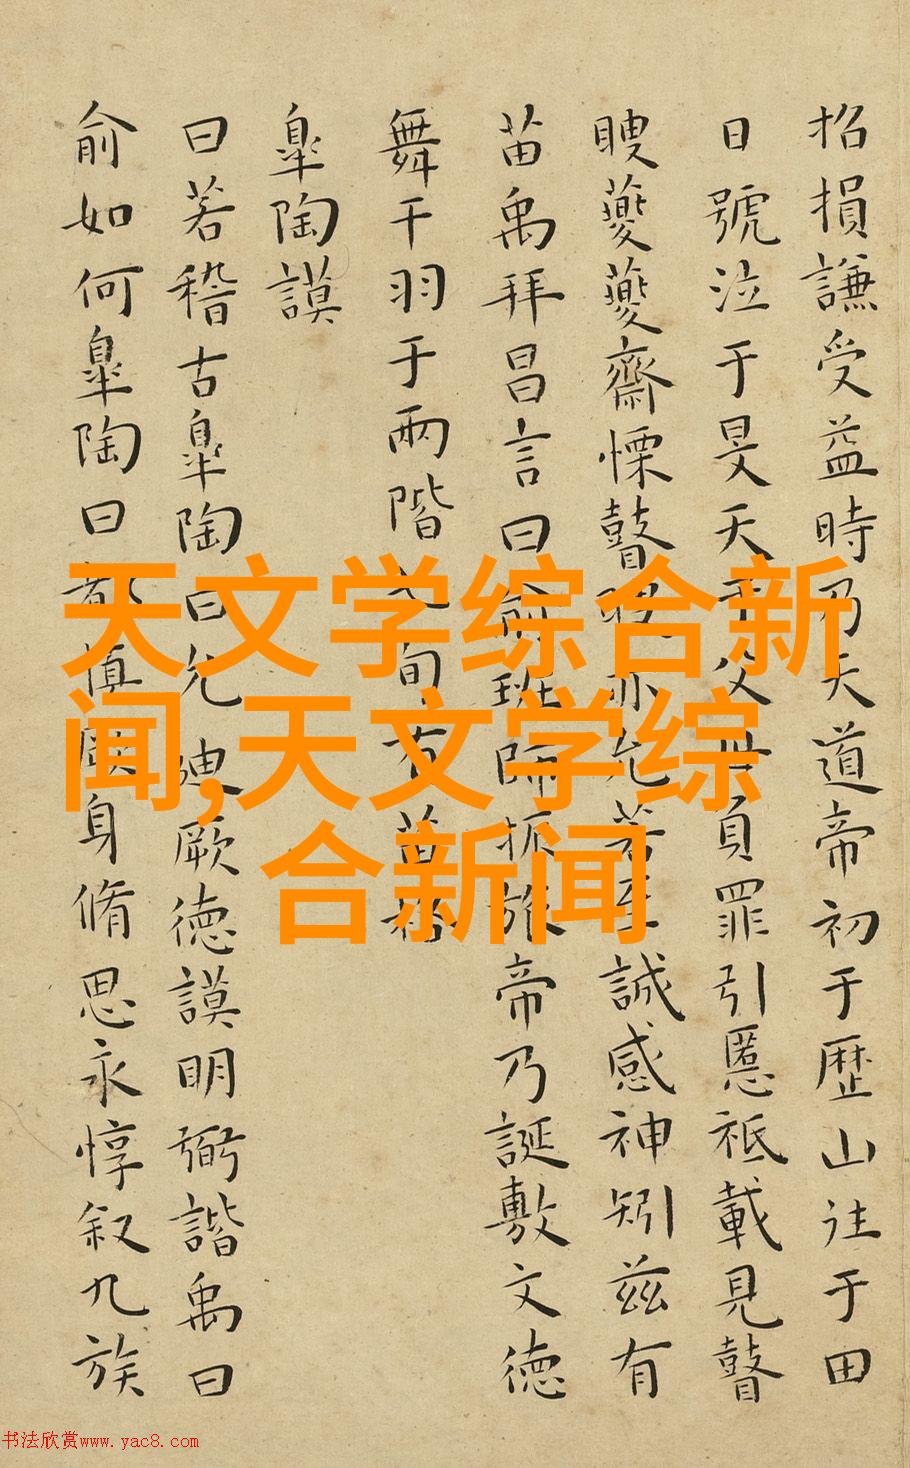 招損謙受益時乃天道帝初于歴山往于田
日號泣于旻天于父母負罪引慝祗載見瞽
瞍夔夔齋慄瞽亦允若至誠感神矧茲有
苗禹拜昌言曰俞班師振旅帝乃誕敷文德
舞干羽于兩階七旬有苗格
皐陶謨
曰若稽古皐陶曰允迪厥德謨明弼諧禹曰
俞如何皐陶曰都慎厥身脩思永惇叙九族
天文学综合新
闻,天文学综
合新闻
书法欣赏www.yac8.com